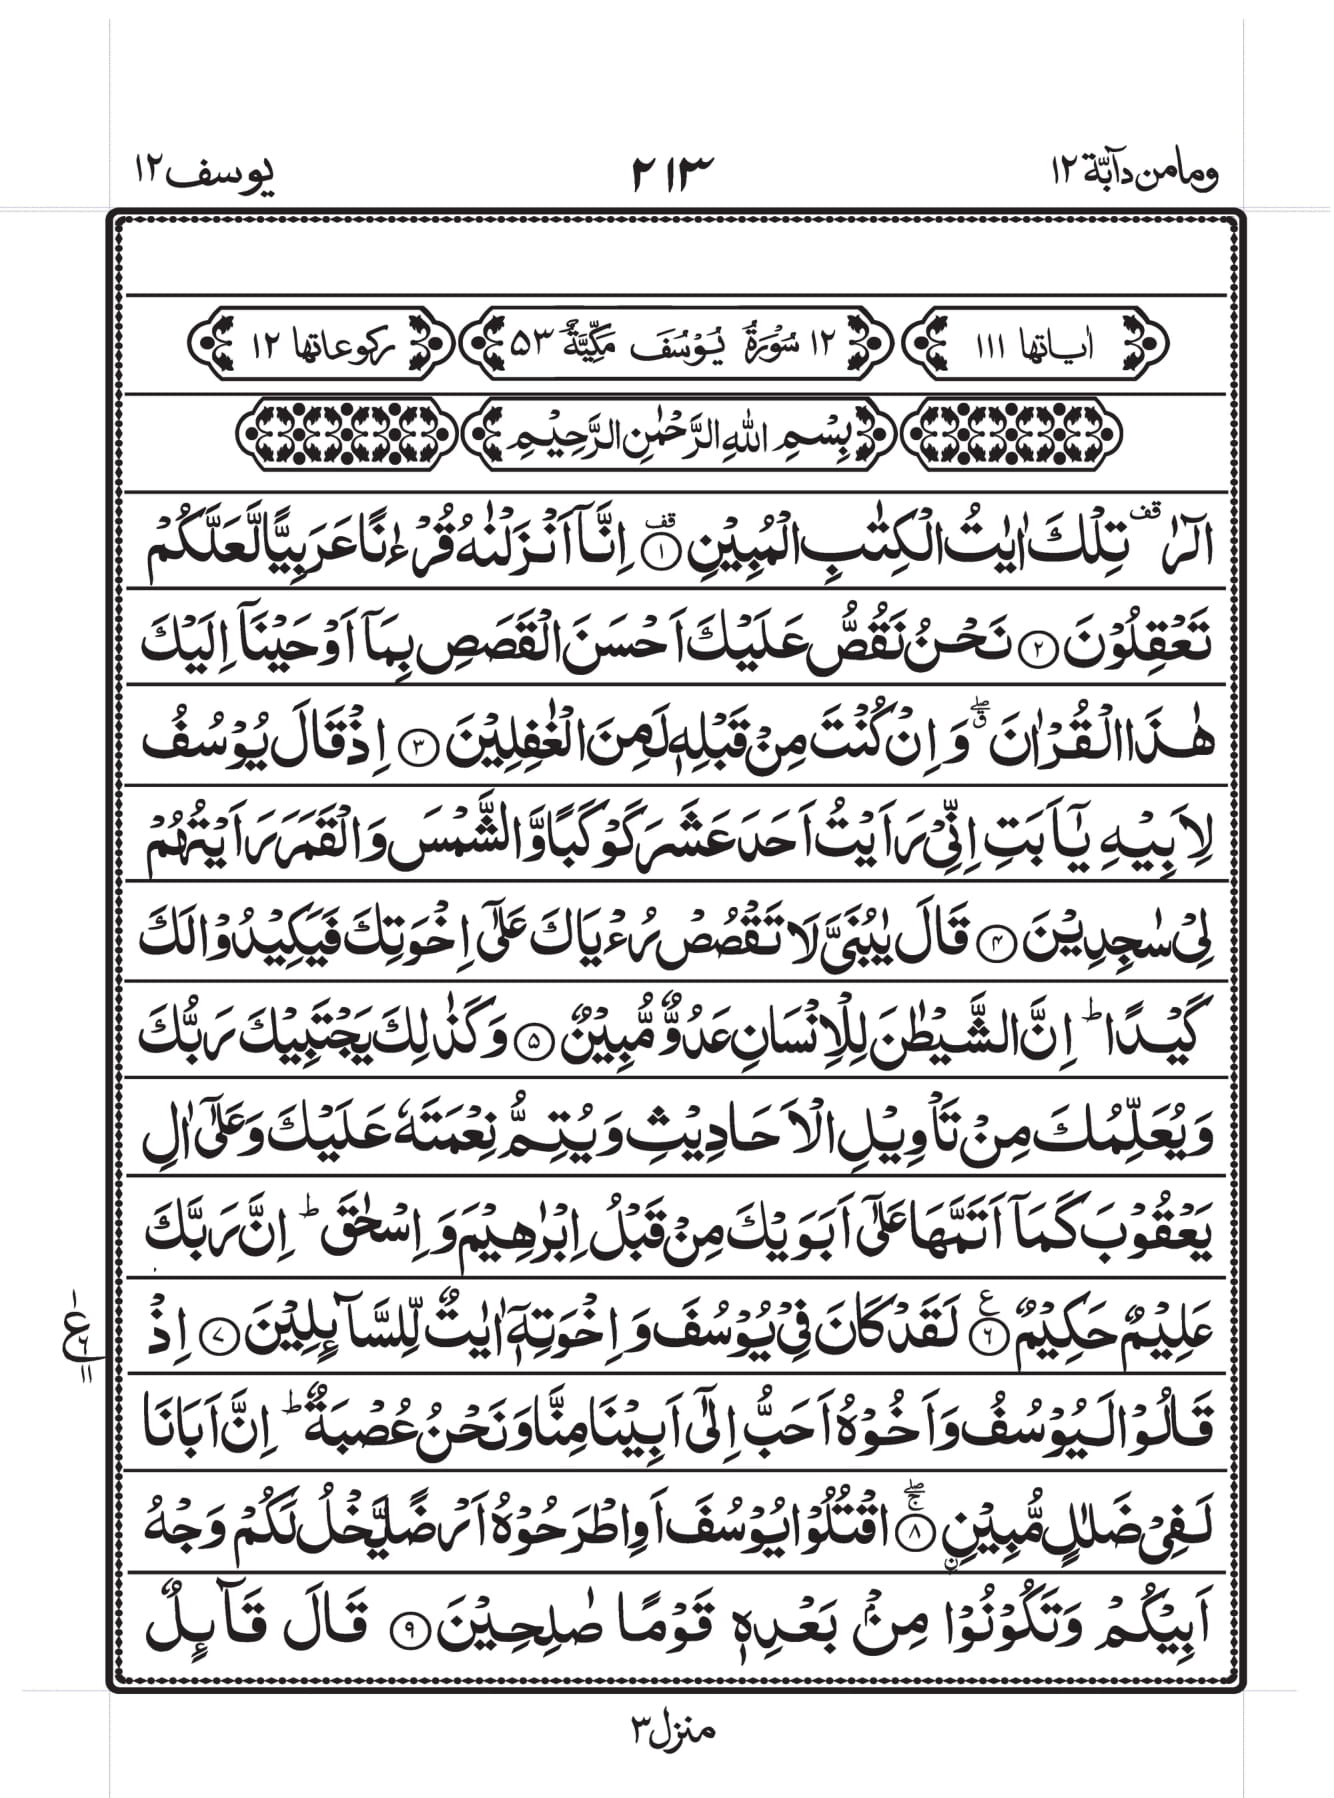 ومامن دآبّة ١٢ ٢١٣ يوسف ١٢
اٰیاتها ١١١ ١٢ سُوْرَةُ يُوْسُفَ مَكِّيَّةٌ ٥٣ ركوعاتها ١٢
بِسْمِ اللّٰهِ الرَّحْمٰنِ الرَّحِيْمِ
الٓرٰ ۟قف تِلْكَ اٰيٰتُ الْكِتٰبِ الْمُبِيْنِ ۟قف ﴿١﴾ اِنَّاۤ اَنْزَلْنٰهُ قُرْءٰنًا عَرَبِيًّا لَّعَلَّكُمْ
تَعْقِلُوْنَ ﴿٢﴾ نَحْنُ نَقُصُّ عَلَيْكَ اَحْسَنَ الْقَصَصِ بِمَاۤ اَوْحَيْنَاۤ اِلَيْكَ
هٰذَا الْقُرْاٰنَ ۖق وَ اِنْ كُنْتَ مِنْ قَبْلِهٖ لَمِنَ الْغٰفِلِيْنَ ﴿٣﴾ اِذْ قَالَ يُوْسُفُ
لِاَبِيْهِ يٰۤاَبَتِ اِنِّيْ رَاَيْتُ اَحَدَ عَشَرَ كَوْكَبًا وَّالشَّمْسَ وَالْقَمَرَ رَاَيْتُهُمْ
لِيْ سٰجِدِيْنَ ﴿٤﴾ قَالَ يٰبُنَيَّ لَا تَقْصُصْ رُءْيَاكَ عَلٰۤى اِخْوَتِكَ فَيَكِيْدُوْا لَكَ
كَيْدًا ؕ اِنَّ الشَّيْطٰنَ لِلْاِنْسَانِ عَدُوٌّ مُّبِيْنٌ ﴿٥﴾ وَكَذٰلِكَ يَجْتَبِيْكَ رَبُّكَ
وَيُعَلِّمُكَ مِنْ تَاْوِيْلِ الْاَحَادِيْثِ وَيُتِمُّ نِعْمَتَهٗ عَلَيْكَ وَعَلٰۤى اٰلِ
يَعْقُوْبَ كَمَاۤ اَتَمَّهَا عَلٰۤى اَبَوَيْكَ مِنْ قَبْلُ اِبْرٰهِيْمَ وَ اِسْحٰقَ ؕ اِنَّ رَبَّكَ
عَلِيْمٌ حَكِيْمٌ ﴿٦﴾ ع لَقَدْ كَانَ فِيْ يُوْسُفَ وَ اِخْوَتِهٖۤ اٰيٰتٌ لِّلسَّآىِٕلِيْنَ ﴿٧﴾ اِذْ
ع ٦ ١١
قَالُوْا لَيُوْسُفُ وَاَخُوْهُ اَحَبُّ اِلٰۤى اَبِيْنَا مِنَّا وَنَحْنُ عُصْبَةٌ ؕ اِنَّ اَبَانَا
لَفِيْ ضَلٰلٍ مُّبِيْنِ ۟ۚۖ ﴿٨﴾ ن اقْتُلُوْا يُوْسُفَ اَوِ اطْرَحُوْهُ اَرْضًا يَّخْلُ لَكُمْ وَجْهُ
اَبِيْكُمْ وَتَكُوْنُوْا مِنْۢ بَعْدِهٖ قَوْمًا صٰلِحِيْنَ ﴿٩﴾ قَالَ قَآىِٕلٌ
منزل ٣